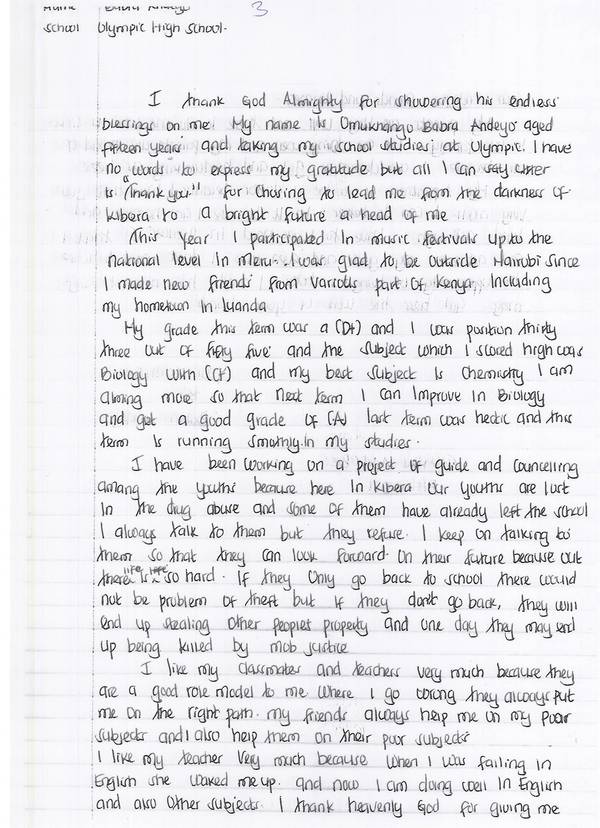 3
School Olympic High School.
I thank God Almighty for showering his endless
blessings on me. My name is Omukhango Babra Andeyo aged
fifteen years and taking my school studies at Olympic. I have
no "words to express my gratitude but all I can say utter
is "Thank you" for chosing to lead me from the darkness of
Kibera to a bright future a head of me
This year I participated in music festivals up to the
national level in Meru. I was glad to be outside Nairobi since
I made new friends from various part of Kenya, including
my hometown in Luanda
My grade this term was a (D+) and I was position thirty
three out of fifty five and the subject which I scored high was
Biology with (C+) and my best subject is Chemistry I am
aiming more so that next term I can improve in Biology
and get a good grade of (A) last term was hectic and this
term is running smothly. In my studies.
I have been working on a project of guide and councelling
amang the youths because here in Kibera our youths are lost
in the drug abuse and some of them have already left the school
I always talk to them but they refuse. I keep on talking to
them so that they can look forward on their future because out
there life is so hard. If they only go back to school there would
not be problem of theft but if they don't go back, they will
end up stealing other peoples property and one day they may end
up being killed by mob justice
I like my classmates and teachers very much because they
are a good role model to me where I go wrong they always put
me on the right path. my friends always help me on my poor
subjects and I also help them on their poor subjects
I like my teacher very much because when I was failing in
English she waked me up. and now I am doing well in English
and also other subjects. I thank heavenly God for giving me